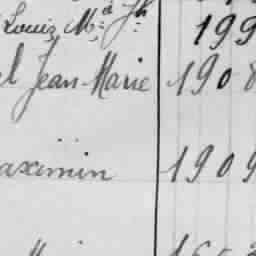 Louis Mie Jh 199
l Jean-Marie 1908
aximin 1909